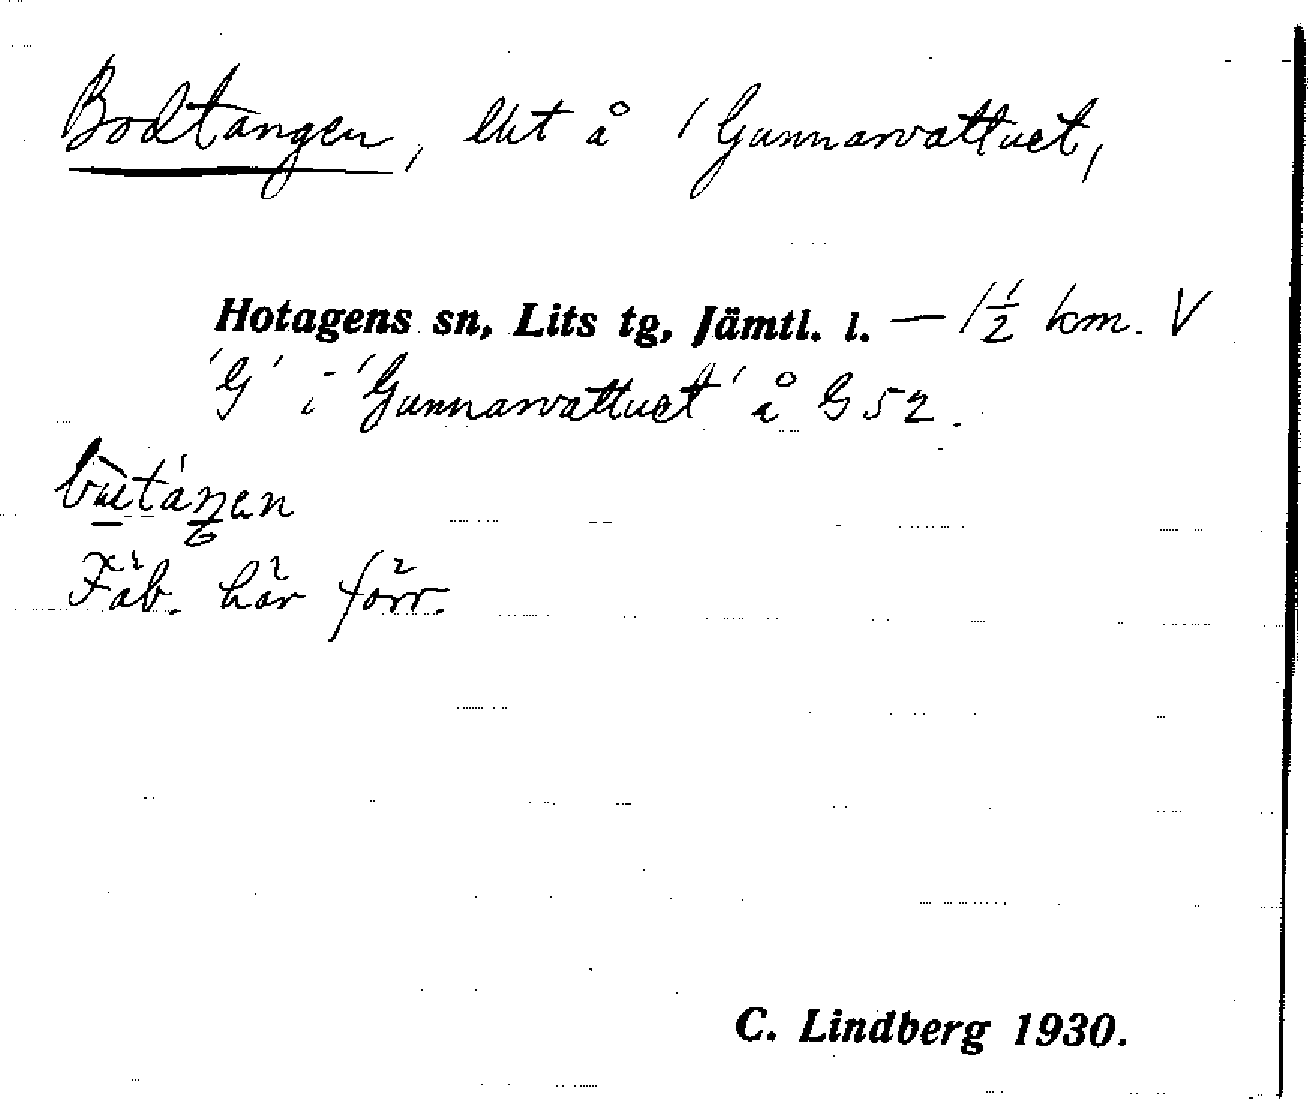 Bodtangen, lkt å 'Gunnarvattnet,
Hotagens sn, Lits tg, Jämtl. l. — 1½ km. V
'G' i 'Gunnarvattnet' å G52.
Fäb. här förr.
C. Lindberg 1930.